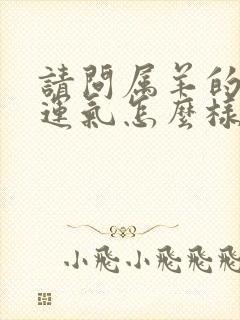 請問属羊的
運氣怎麼樣
小飛小飛飛飛